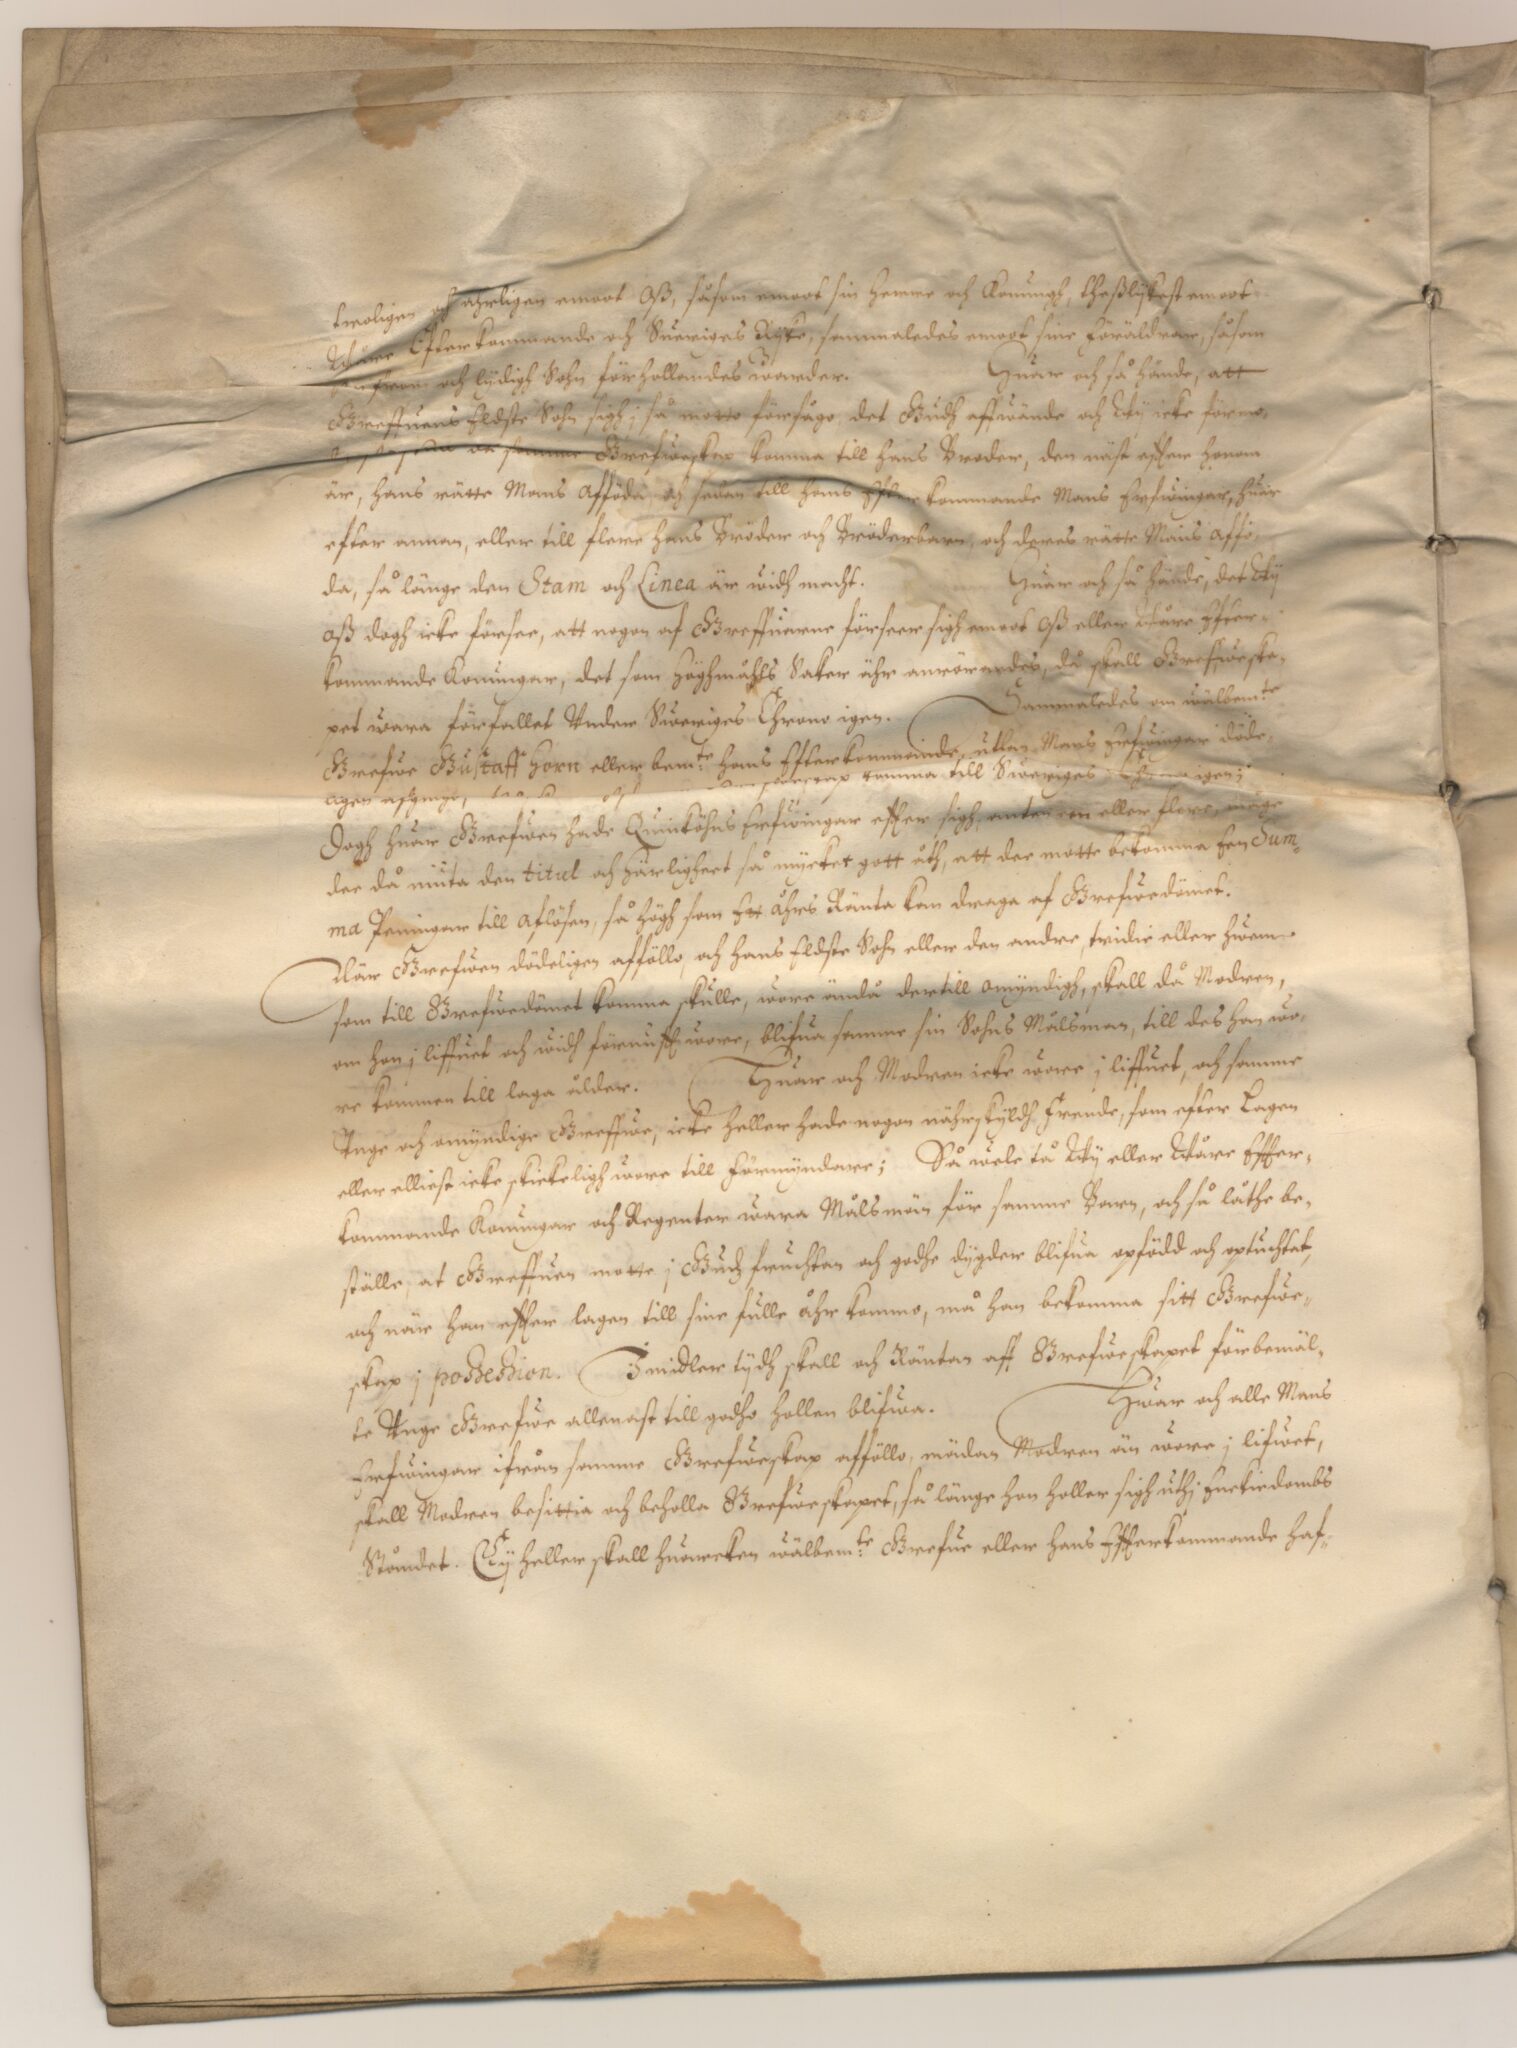 troligen och ährligen emoot Oß, såsom emoot sin Herre och Konungh, theßlykest emoot
Wåre Efterkommande och Sueriges Rijke, sammaledes emoot sine föräldrar, såsom
from och lydigh Sohn förhollandes warder. Huar och så hände, att
Greffuens Eldste Sohn sigh i så motto försågo, det Gudh affwände och Wij icke förmo-
samme Grefweskap komma till hans Broder, den näst effter honom
är, hans rätte Mans Afföda, och sedan till hans Efterkommande Mans Erfwingar, huar
efter annan, eller till flere hans Bröder och Bröderbarn, och deres rätte Mans Affö-
da, så länge den Stam och Linea är widh macht. Huar och så hände, det Wij
Oß dogh icke försee, att nogon af Greffuerne förseer sigh emoot Oß eller Wåre Efter-
kommande Konungar, det som Höghmåhls Saker ähr anrörandes, då skall Grefweska-
pet wara förfallet Vnder Sweriges Chrono igen. Sammaledes om wälbem:te
Grefwe Gustaff Horn eller bem:te hans Efterkommande, uthan Mans Erfwingar döde-
ligen afginge, komma till Sweriges Chrono igen;
Dogh huar Grefwen hade Quinköhns Erfwingar effter sigh, anten een eller flere, måge
dee då niuta den titul och Härlighet så myrket gott åth, att dee motte bekomma Een Sum-
ma Peningar till Aflösen, så högh som Ett Åhrs Ränta kan draga af Grefwedömet.
När Grefwen dödeligen afföllo, och hans Eldste Sohn eller den andre, tridie eller hwem
som till Grefwedömet komma skulle, wore ändå dertill omyndigh, skall då Modren,
om hon i liffuet och widh förnufft wore, blifua samme sin Sohns Målsman, till des han wo-
re kommen till laga ålder. Huar och Modren icke wore i liffuet, och samme
Unge och omyndige Greffwe, icke heller hade nogon nährskyldh Frende, som efter Lagen
eller elliest icke skickeligh wore till Förmyndare; Så wele tå Wij eller Wåre Effter-
kommande Konungar och Regenter wara Målsmän för samme Barn, och så låthe be-
ställe, at Greffuen motte i Gudz fruchtan och godhe dygder blifua opfödd och optuchtat,
och när han effter lagen till sine fulle åhr kommo, må han bekomma sitt Grefwe-
skap i possession. Imidler tijdh skall och Räntan aff Grefweskapet förbemäl-
te Unge Grefwe allenast till godho hollen blifwa. Hwar och alle Mans
Erfwingar ifrån samme Grefweskap afföllo, mädan Modren än wore i lifwet,
skall Modren besittia och beholla Grefweskapet, så länge hon holler sigh uthi Enkiedombs
Ståndet. Ey heller skall huarcken wälbem:te Grefue eller hans Effterkommande haf-